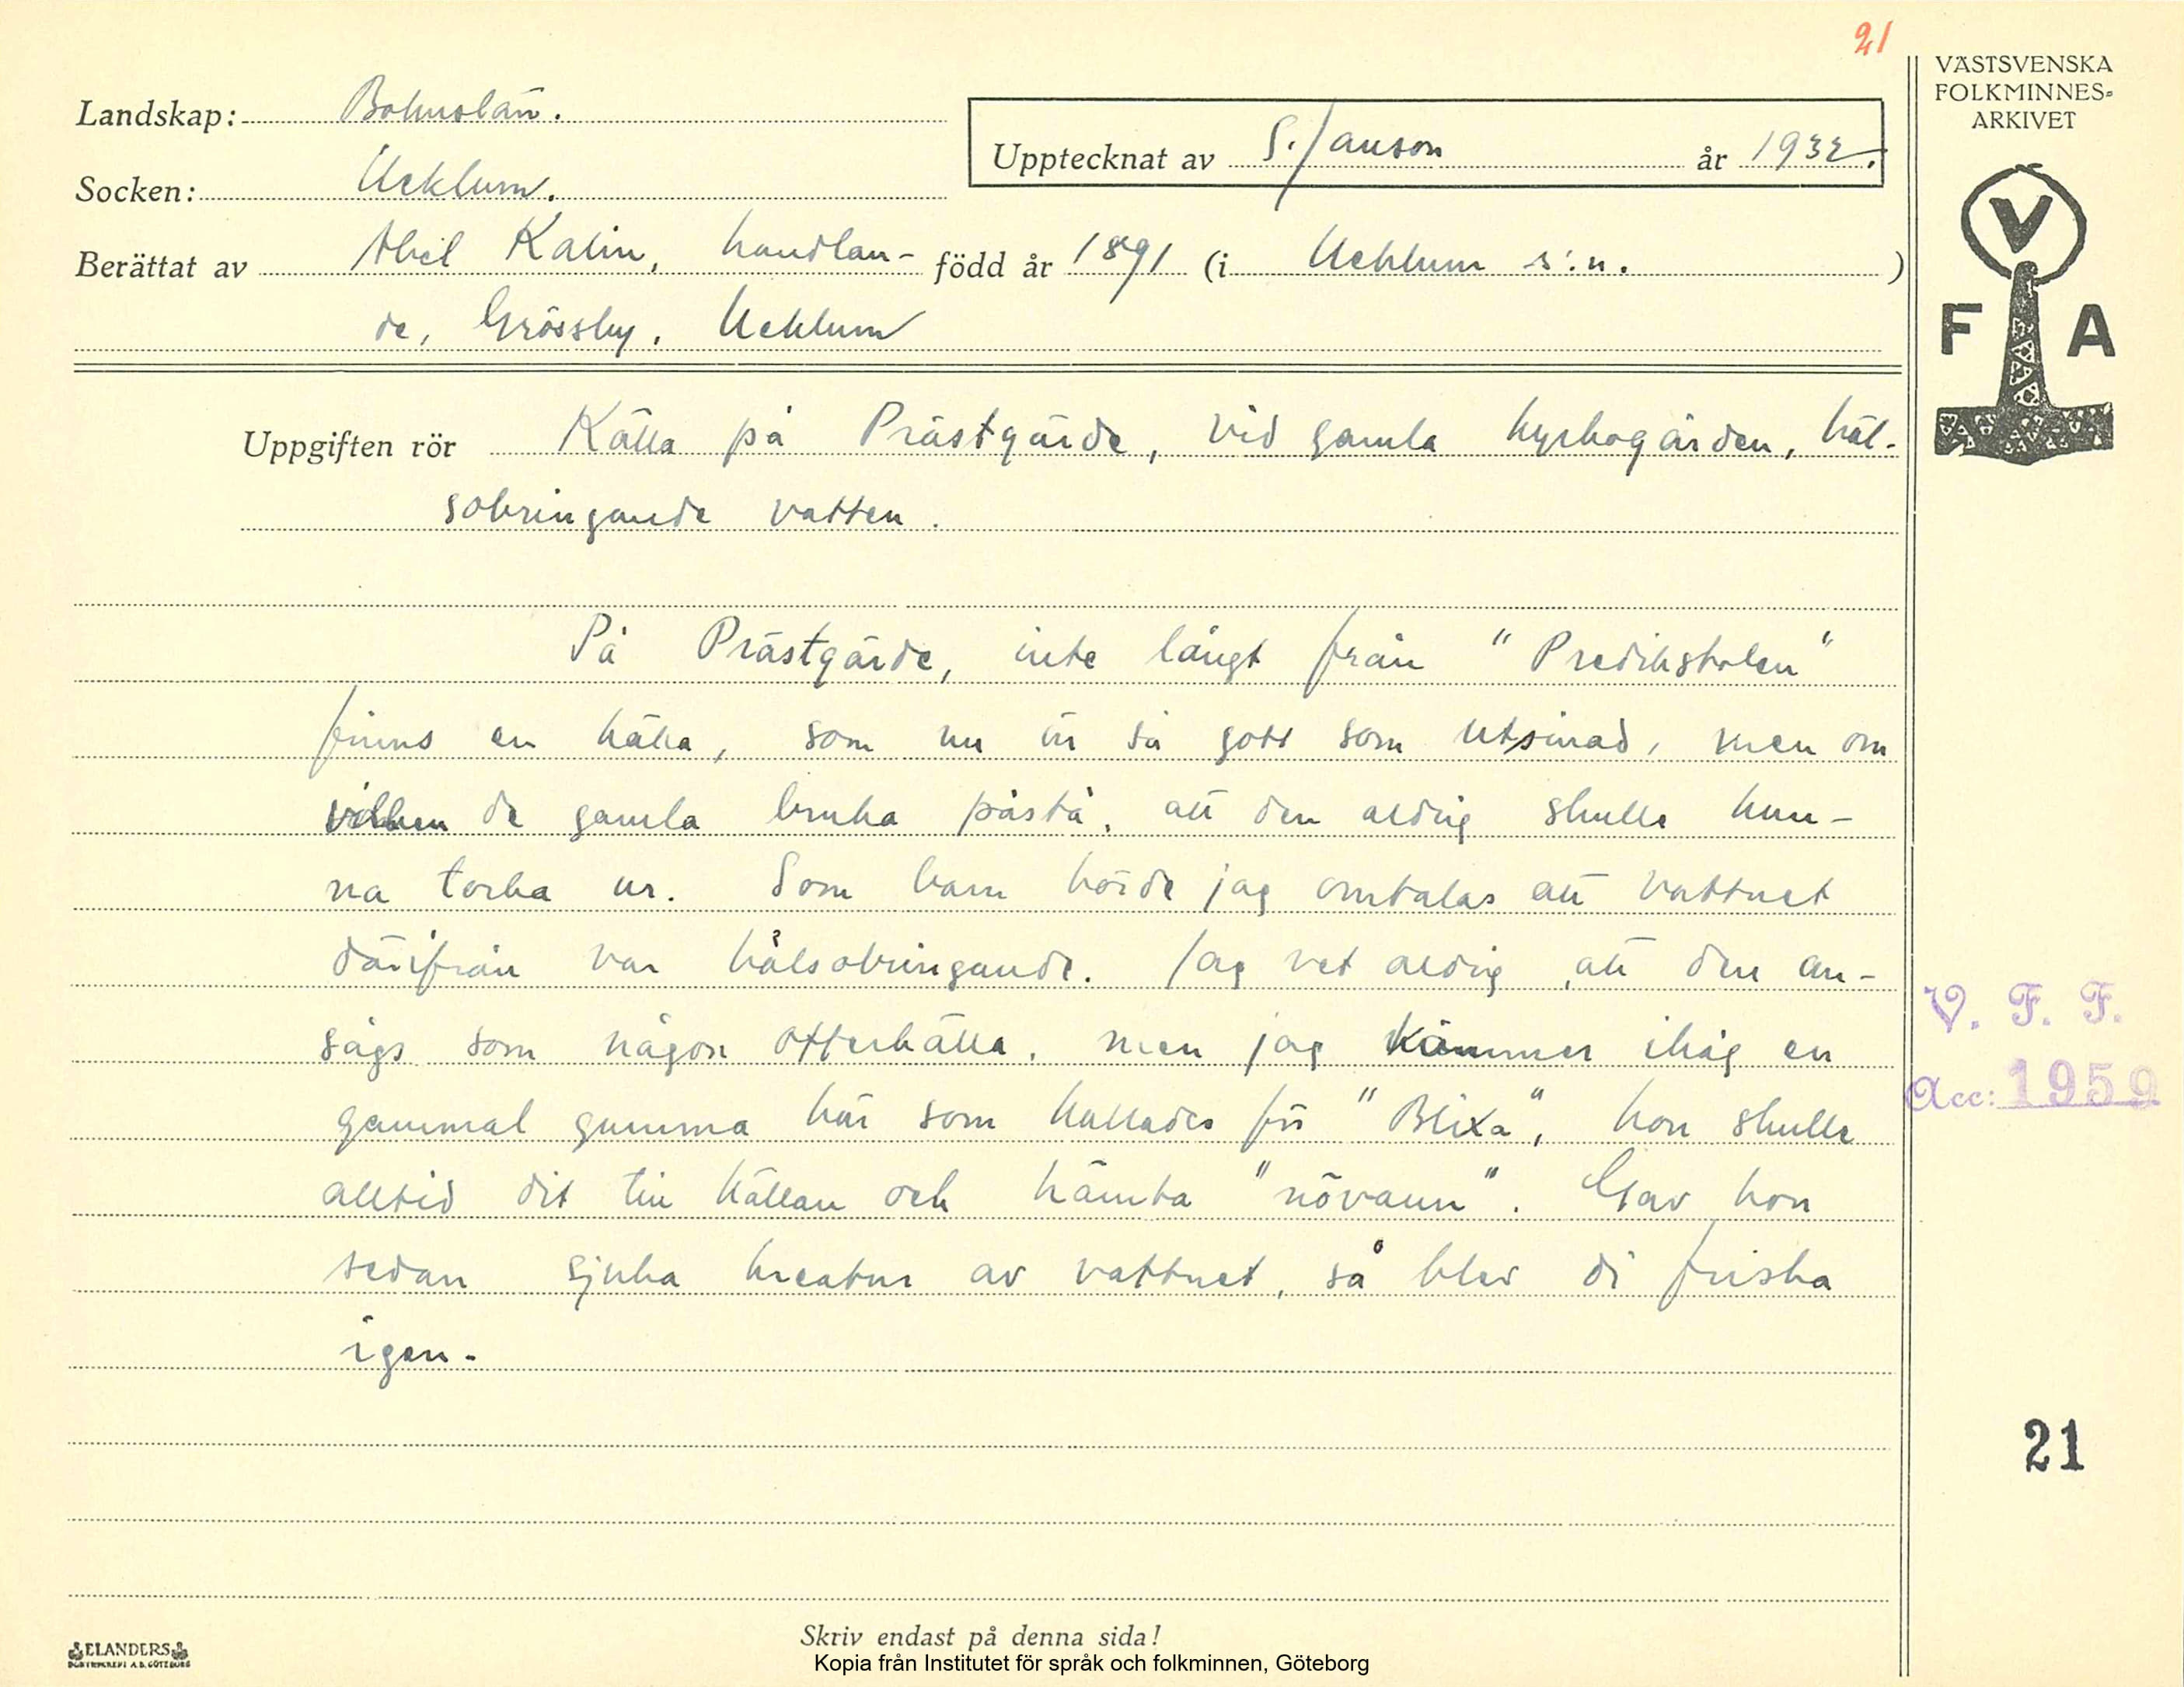 21
VÄSTSVENSKA
FOLKMINNES-
ARKIVET
Landskap: Bohuslän.
Upptecknat av S. Janson år 1932.
Socken: Ucklum.
Berättat av Abel Kalin, handlan- född år 1891 (i Ucklum s:n. )
de, Grössby, Ucklum
V
F A
Uppgiften rör Källa på Prästgärde, vid gamla kyrkogården, häl-
sobringande vatten.
På Prästgärde, inte långt från "Predikstolen"
finns en källa, som nu är så gott som utsinad, men om
vilken de gamla bruka påstå, att den aldrig skulle kun-
na torka ur. Som barn hörde jag omtalas att vattnet
därifrån var hälsobringande. Jag vet aldrig, att den an-
sågs som någon offerkälla, men jag kommer ihåg en
gammal gumma här som kallades för "Blixa", hon skulle
alltid dit till källan och hämta "növann". Gav hon
sedan sjuka kreatur av vattnet, så blev di friska
igen.
V. F. F.
Acc: 1959
21
Skriv endast på denna sida!
ELANDERS
Kopia från Institutet för språk och folkminnen, Göteborg